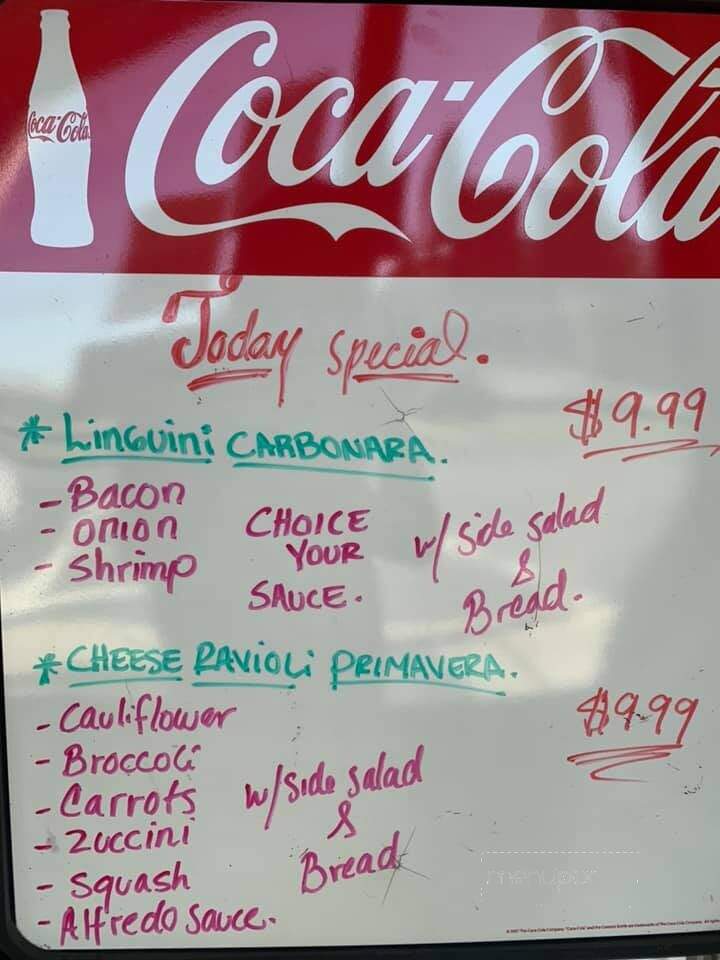 Coca-Cola
Coca-Cola
Today special.
* Linguini CARBONARA.
$9.99
- Bacon
- onion
- Shrimp
CHOICE
YOUR
SAUCE.
w/ side salad
&
Bread.
* CHEESE RAVIOLI PRIMAVERA.
$9.99
- Cauliflower
- Broccoli
- Carrots
- Zuccini
- Squash
- Alfredo sauce.
w/ side salad
&
Bread
menupix